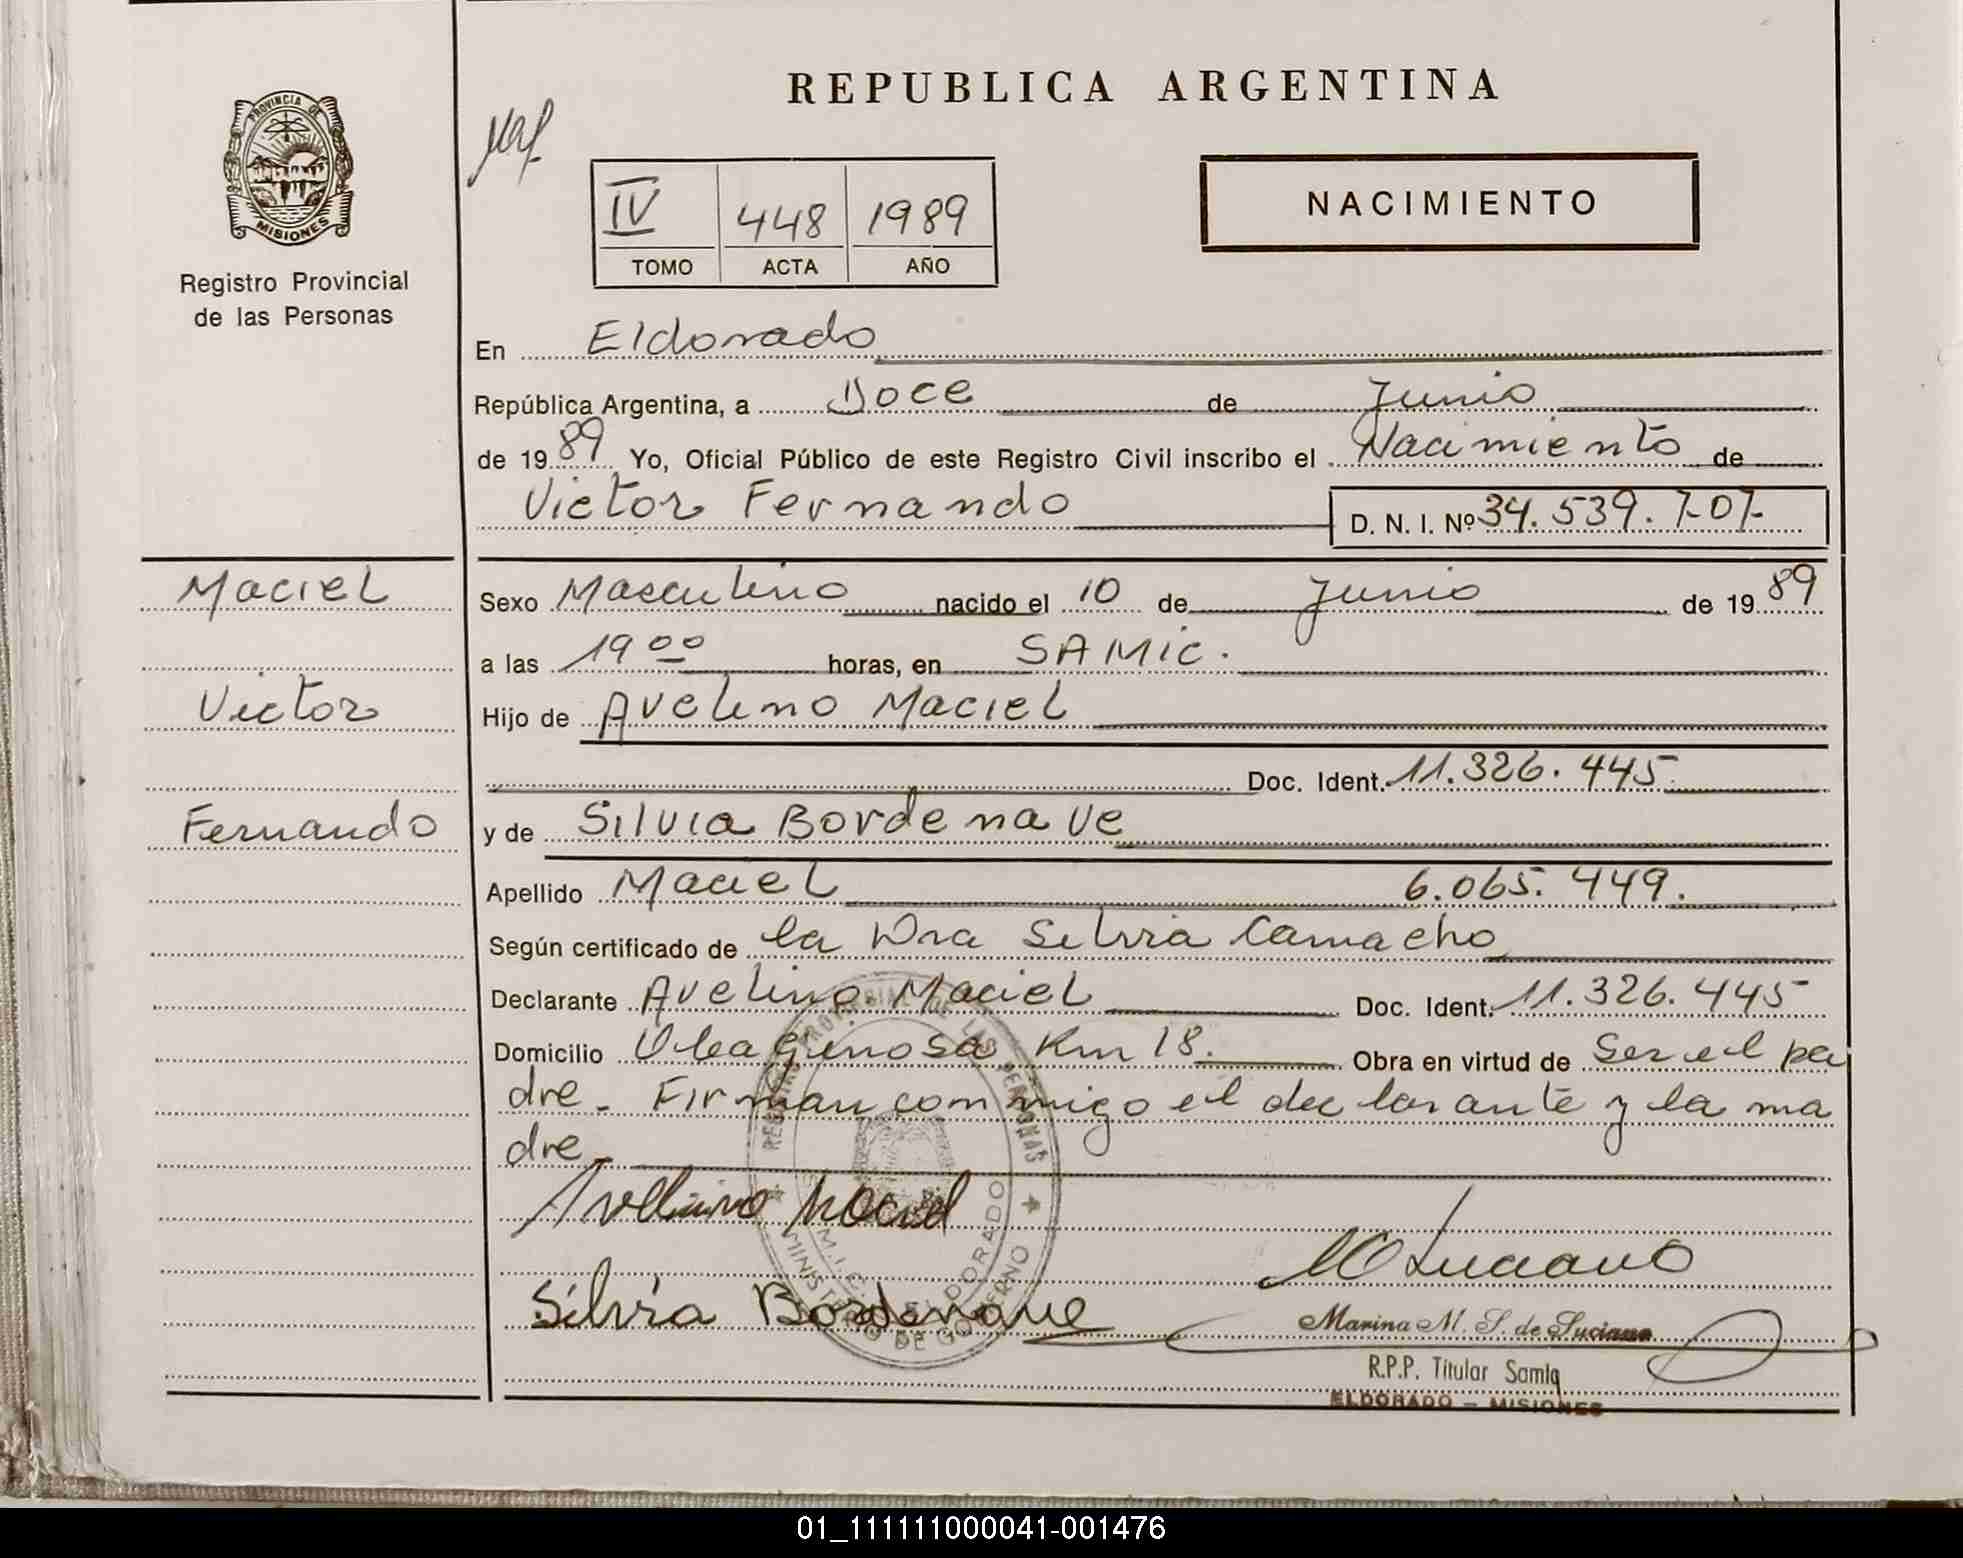 REPUBLICA ARGENTINA
PROVINCIA DE
MISIONES
Registro Provincial
de las Personas
IV 448 1989
TOMO ACTA AÑO
NACIMIENTO
En Eldorado
República Argentina, a Doce de Junio
de 1989 Yo, Oficial Público de este Registro Civil inscribo el Nacimiento de
Victor Fernando D. N. I. Nº 34.539.707
Maciel
Victor
Fernando
Sexo Masculino nacido el 10 de Junio de 1989
a las 19 00 horas, en SAMIC.
Hijo de Avelino Maciel
Doc. Ident. 11.326.445
y de Silvia Bordenave
Apellido Maciel 6.065.449.
Según certificado de la Dra Silvia Camacho
Declarante Avelino Maciel Doc. Ident. 11.326.445
Domicilio Oleaginosa Km 18. Obra en virtud de Ser el pa
dre. Firman conmigo el declarante y la ma
dre
Avelino Maciel
Silvia Bordenave
Luciano
Marina M. S. de Luciano
R.P.P. Titular Samic
ELDORADO - MISIONES
REGISTRO PROVINCIAL DE LAS PERSONAS
MINISTERIO DE GOBIERNO
ELDORADO
01_111111000041-001476